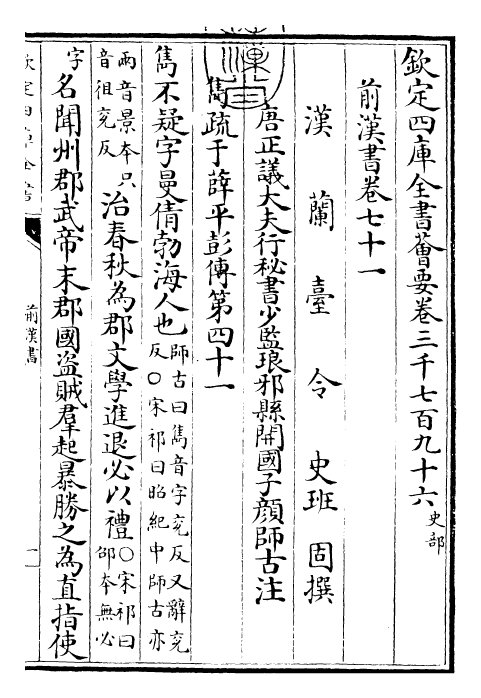 欽定四庫全書薈要卷三千七百九十六史部
前漢書卷七十一
漢蘭臺令史班固撰
唐正議大夫行秘書少監琅邪縣開國子顔師古注
雋疏于薛平彭傳第四十一
雋不疑字曼倩勃海人也師古曰雋音字兖反又辭兖反○宋祁曰昭紀中師古亦
兩音景本只音徂兖反治春秋為郡文學進退必以禮○宋祁曰邵本無必
字名聞州郡武帝末郡國盜賊羣起暴勝之為直指使
前漢書
一